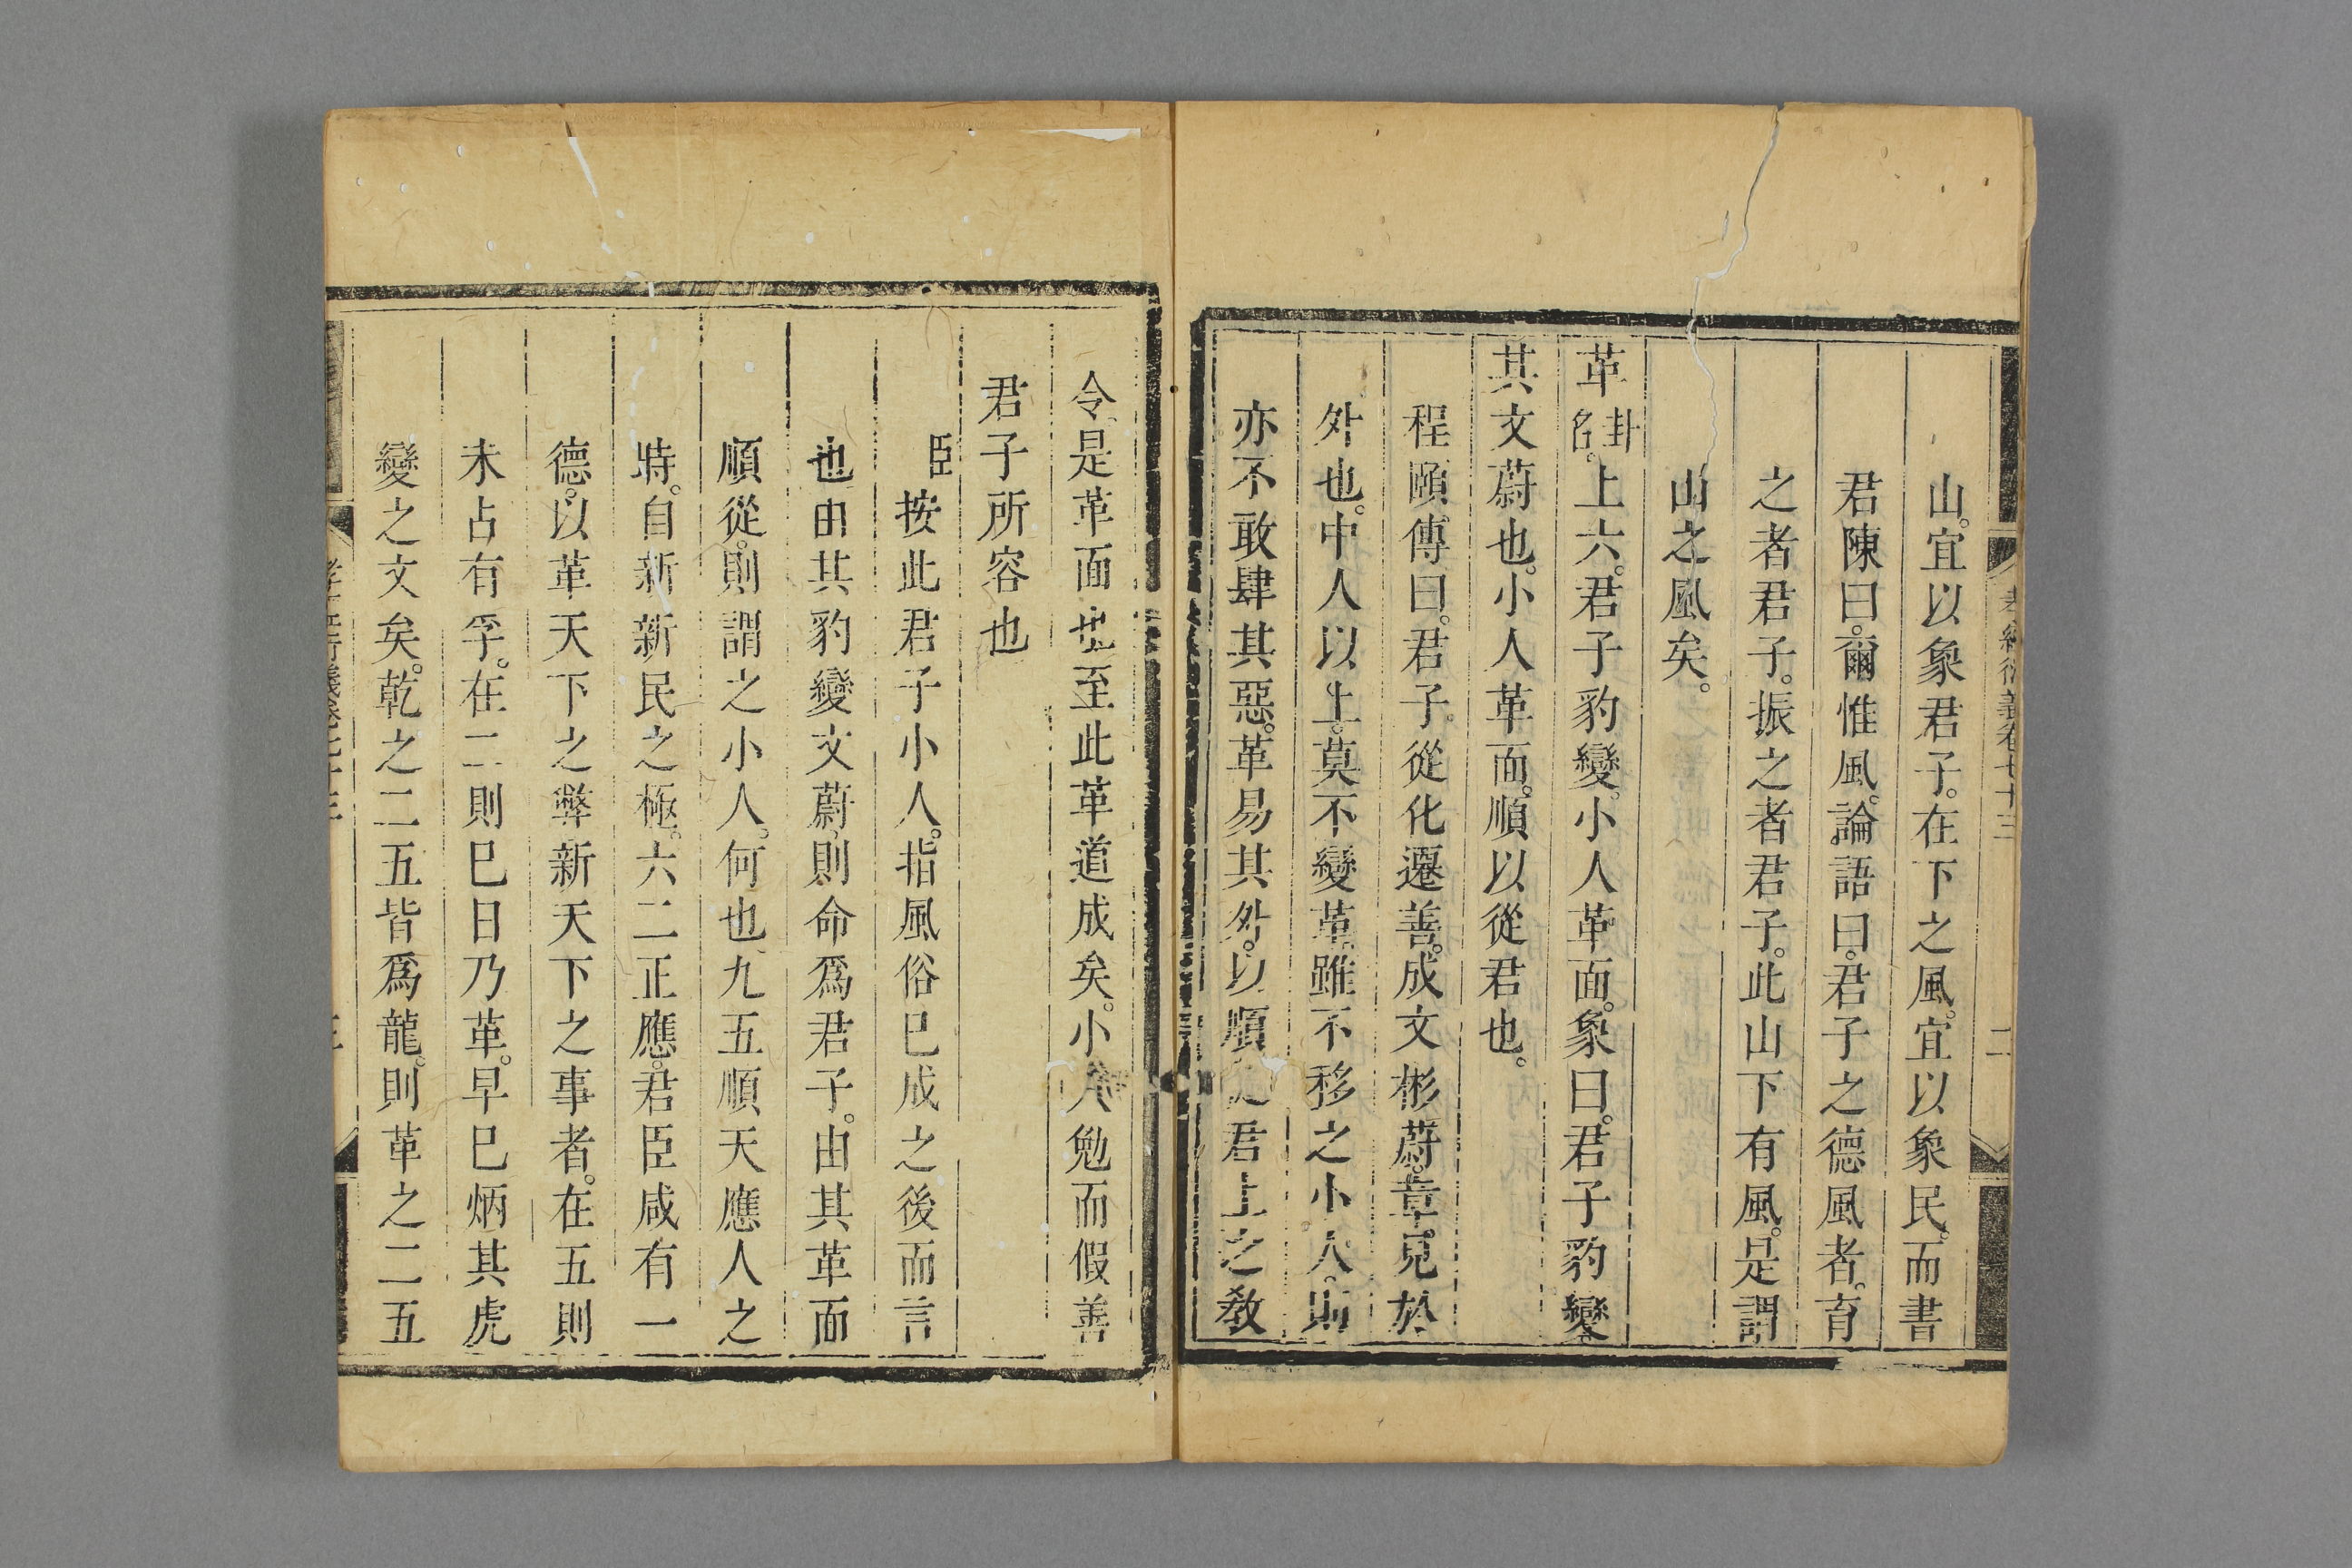 孝經衍義卷七十三
二
山。宜以象君子。在下之風。宜以象民。而書
君陳曰。爾惟風。論語曰。君子之德風者。育
之者君子。振之者君子。此山下有風。是謂
山之風矣。
革卦名。上六。君子豹變。小人革面。象曰。君子豹變
其文蔚也。小人革面。順以從君也。
程頤傳曰。君子從化遷善。成文彬蔚。章見於
外也。中人以上。莫不變革。雖不移之小人。則
亦不敢肆其惡。革易其外。以順從君上之敎
令。是革面也。至此革道成矣。小人勉而假善
君子所容也
臣按此君子小人。指風俗已成之後而言
也由其豹變文蔚。則命爲君子。由其革而
順從。則謂之小人。何也。九五順天應人之
時。自新新民之極。六二正應。君臣咸有一
德。以革天下之弊新天下之事者。在五則
未占有孚。在二則巳日乃革。早巳炳其虎
變之文矣。乾之二五皆爲龍。則革之二五